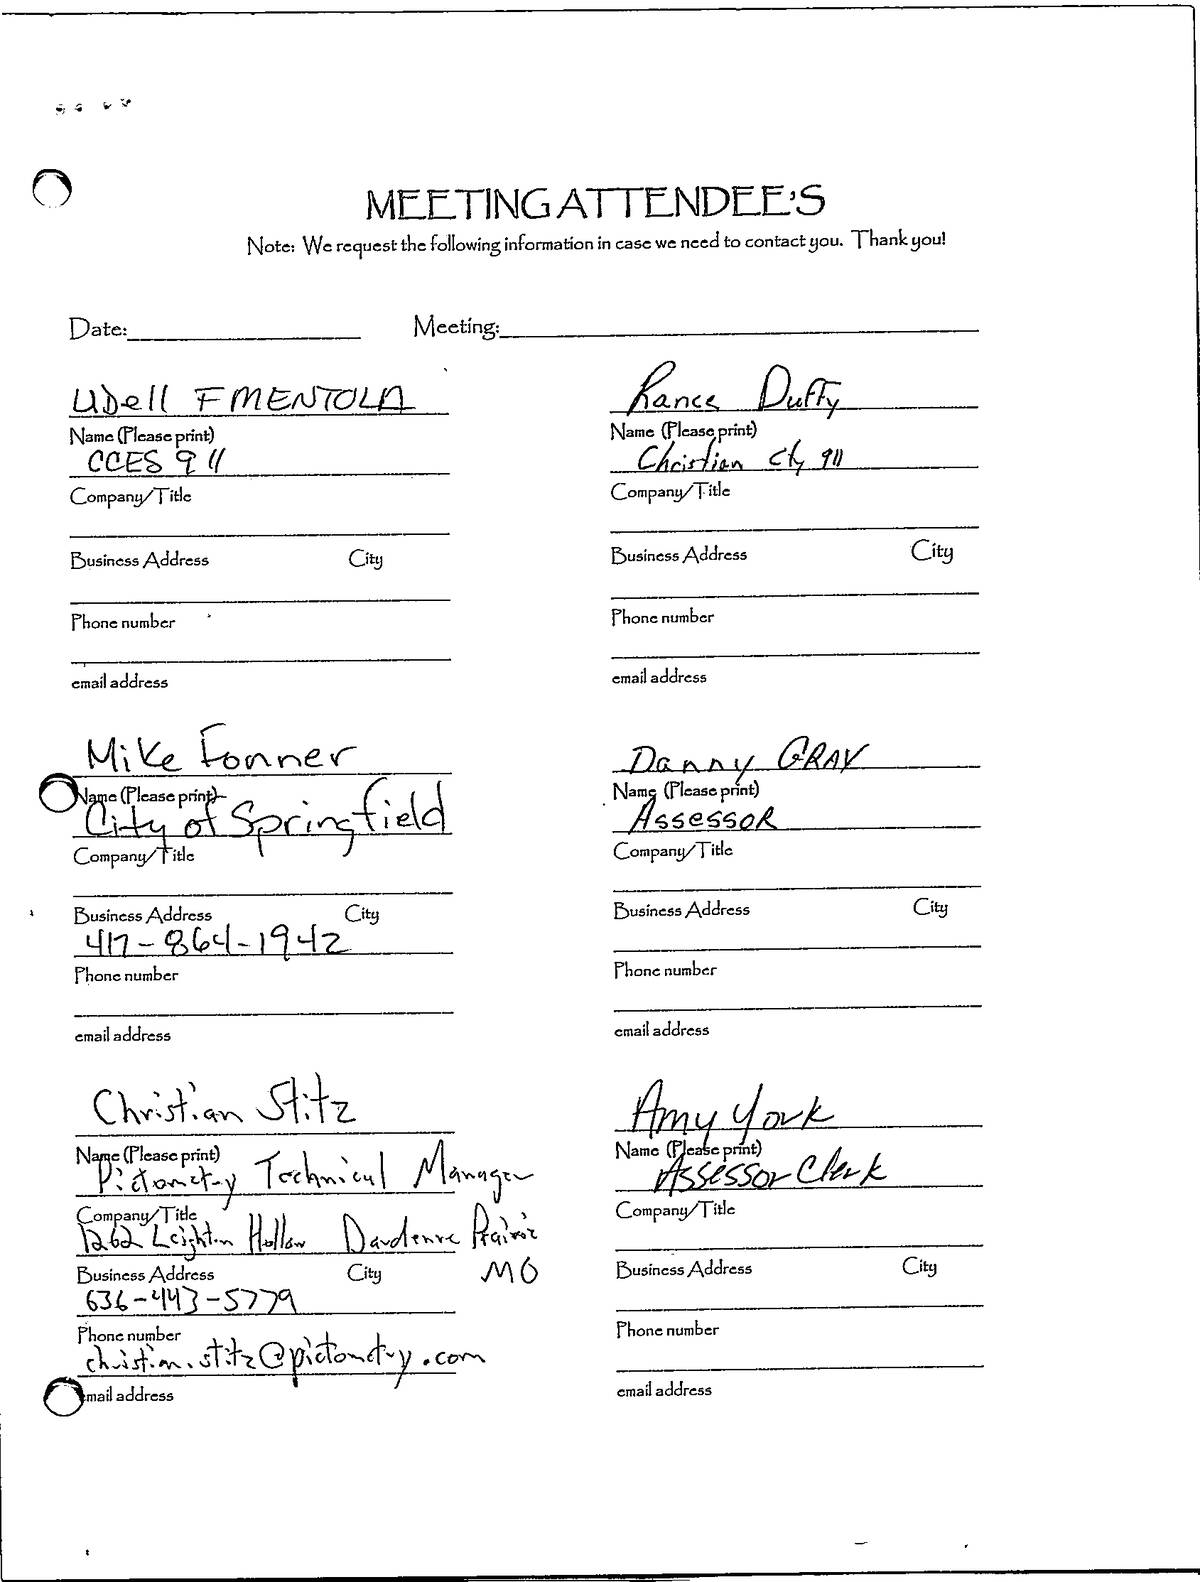 MEETING ATTENDEE'S
Note: We request the following information in case we need to contact you. Thank you!
Date: Meeting:
UDell F MENTOLA
Name (Please print)
CCES 911
Company/Title
Business Address City
Phone number
email address
Rance Duffy
Name (Please print)
Christian Cty 911
Company/Title
Business Address City
Phone number
email address
Mike Fonner
Name (Please print)
City of Springfield
Company/Title
Business Address City
417-864-1942
Phone number
email address
Danny GRAY
Name (Please print)
ASSESSOR
Company/Title
Business Address City
Phone number
email address
Christian Stitz
Name (Please print)
Pictometry Technical Manager
Company/Title
1262 Leighton Hollow Dardenne Prairie
Business Address City MO
636-443-5779
Phone number
christian.stitz@pictometry.com
email address
Amy York
Name (Please print)
Assessor Clerk
Company/Title
Business Address City
Phone number
email address